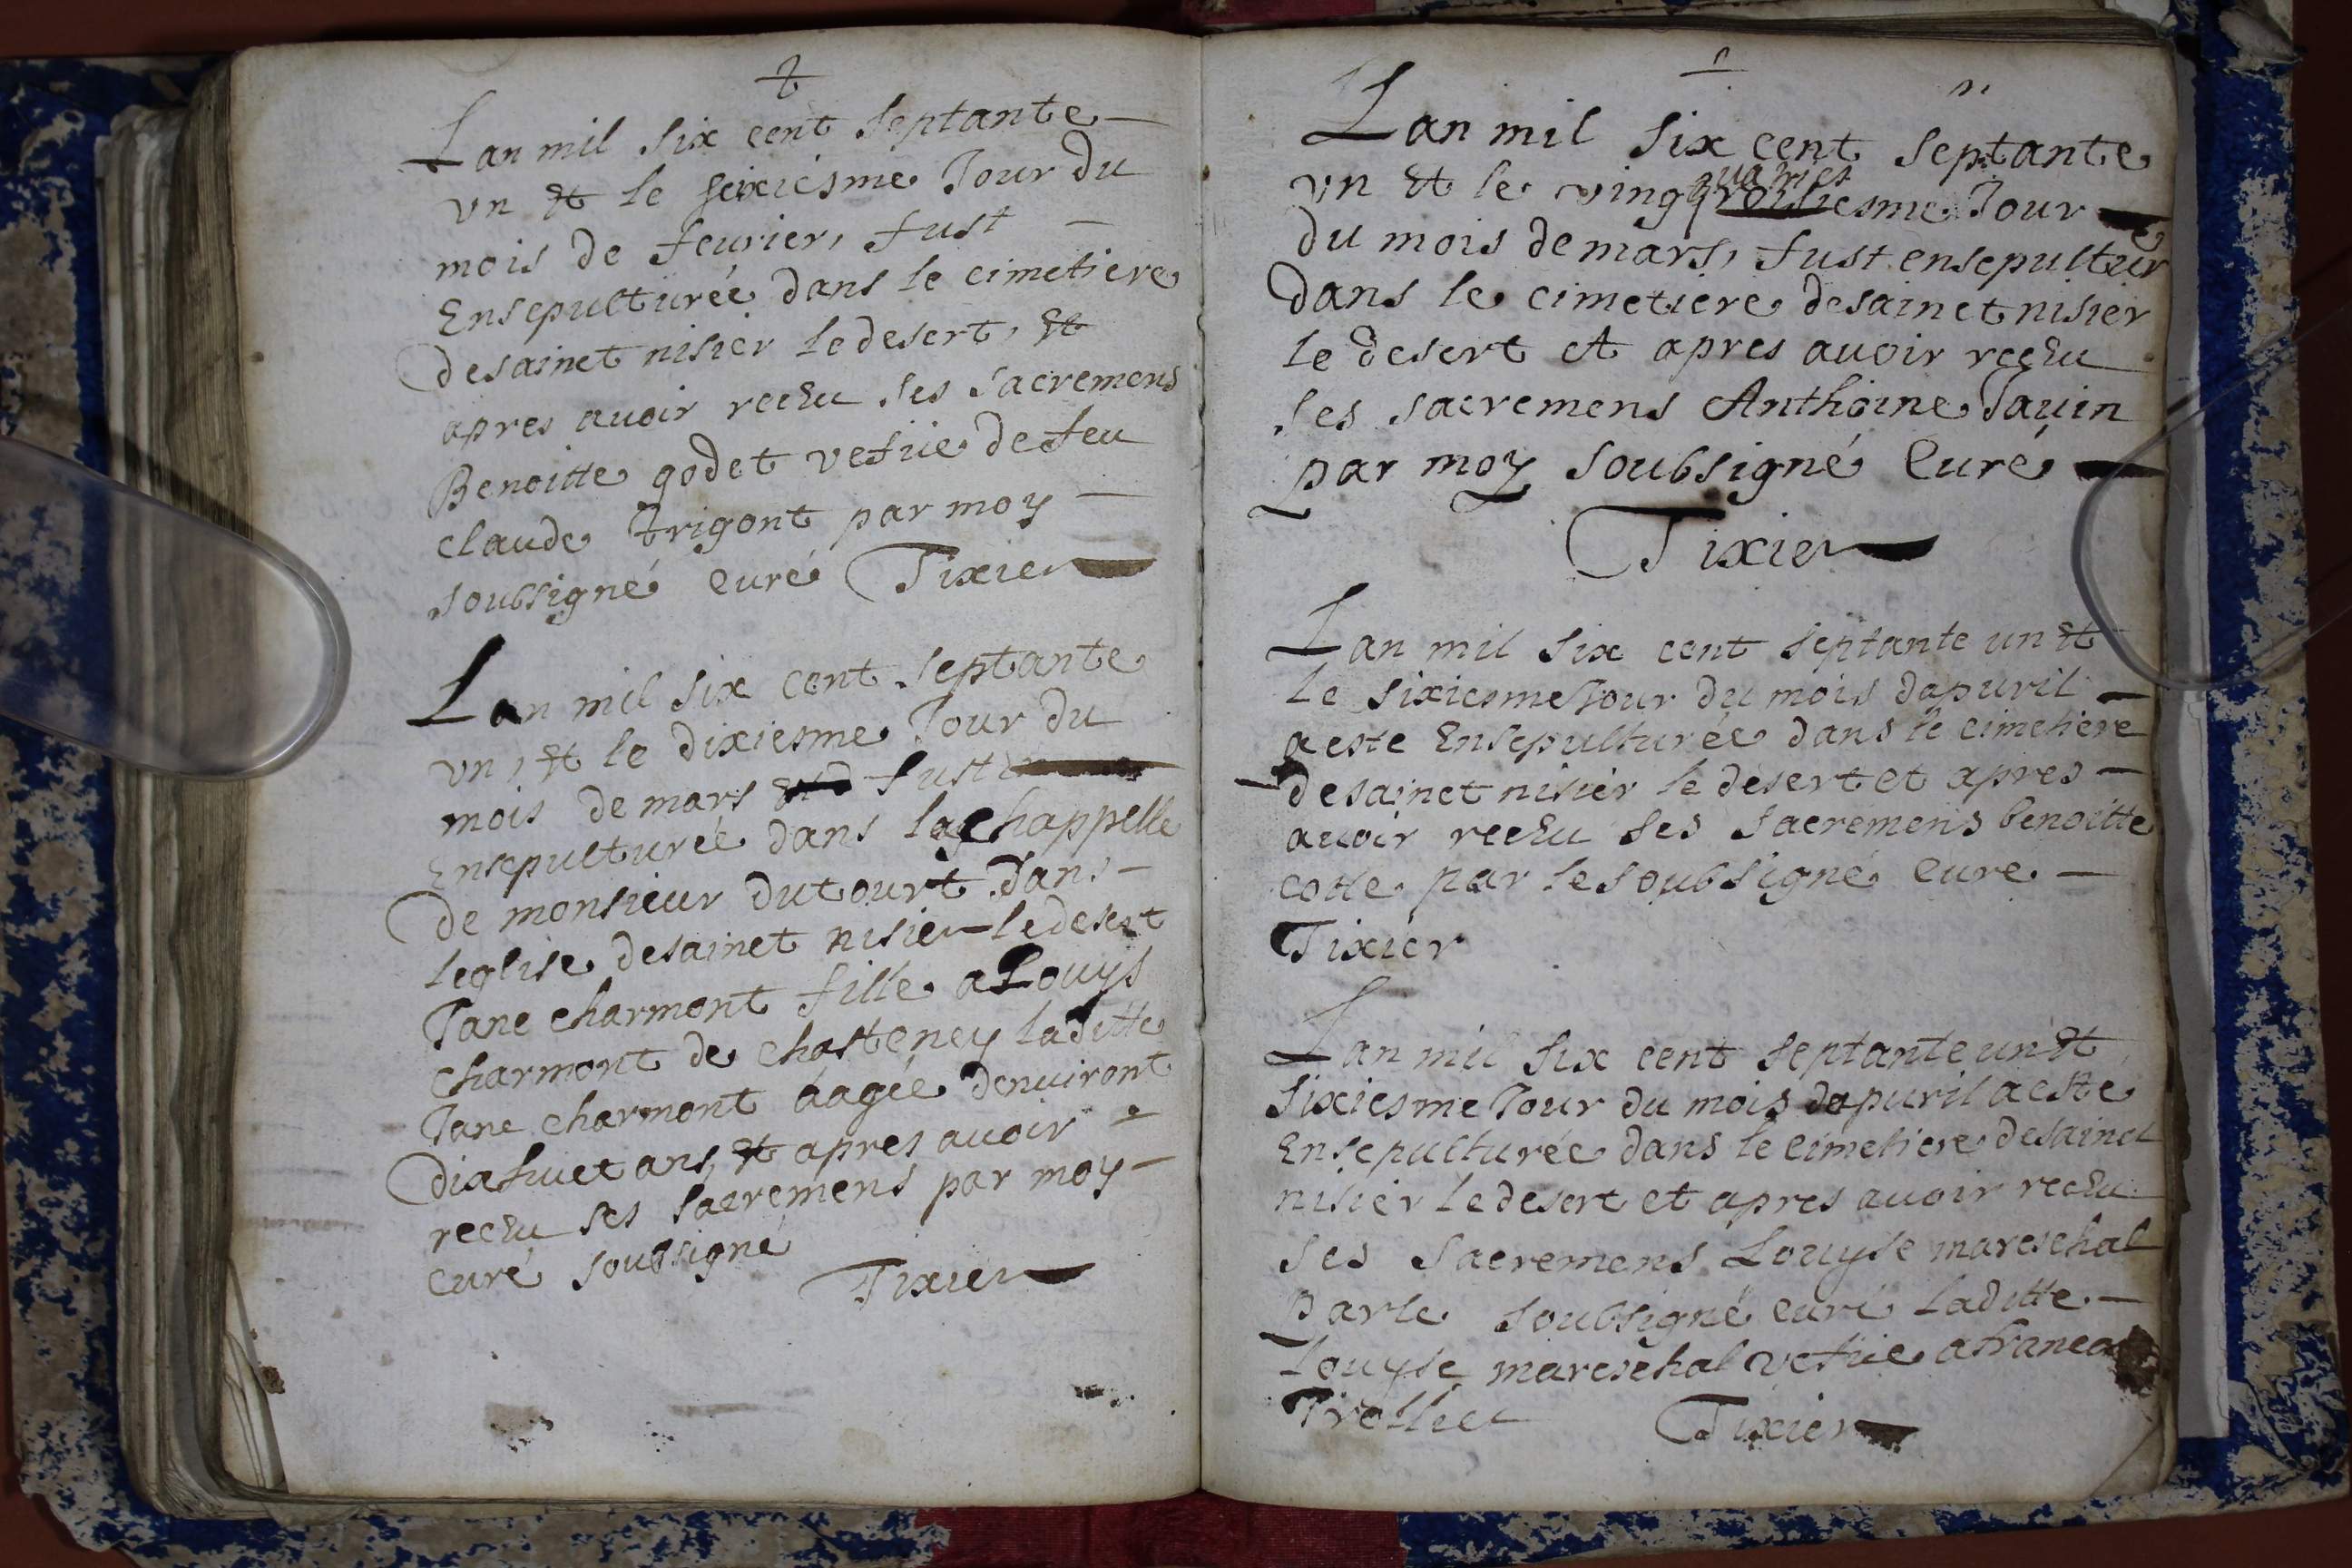 Lan mil six cent septante
vn et le seixiesme Jour du
mois de feurier, fust
Ensepulturée dans le cimetiere
desainct nisier ledesert, et
apres auoir recĕu ses sacremens
Benoitte godet vefüe defeu
claude trigont par moy
soubsigné curé Tixier
Lan mil six cent septante
vn, et le dixiesme Jour du
mois de mars fust
Ensepulturée dans lachappelle
de monsieur dutourt dans
leglise desainct nisier ledesert
Jane charmont fille a Louys
charmont de chasteney laditte
Jane charmont áagée denuiront
dixhuict ans, et apres auoir
recĕu ses sacremens par moy
curé soubsigné
Tixier
Lan mil six cent septante
vn et le vingt quatriesme Jour
du mois demars, fust ensepulturé
dans le cimetiere desainct nisier
le desert et apres auoir recĕu
ses sacremens Anthoine Jauin
par moy soubsigné curé
Tixier
Lan mil six cent septante un et
le sixiesme Jour du mois dapuril
aeste Ensepulturée dans le cimetiere
desainct nisier le desert et apres
auoir recĕu ses sacremens benoitte
cotte par lesoubsigné cure
Tixier
Lan mil six cent septante un et
sixiesme Jour du mois dapuril aesté
Ensepulturée dans le cimetiere desainct
nisier ledesert et apres auoir recĕu
ses sacremens Louyse mareschal
Parle soubsigné curé laditte
Louyse mareschal vefüe
Trolliet Tixier